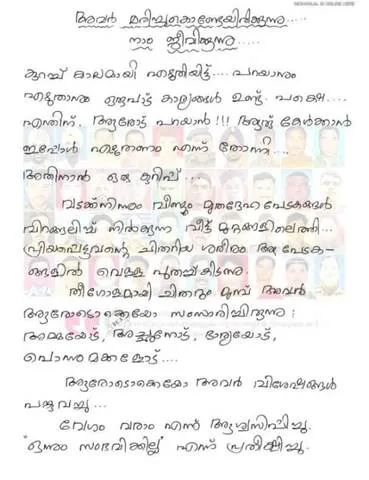 അവർ മരിച്ചുകൊണ്ടേയിരിക്കുന്നു....
നാം ജീവിക്കുന്നു.....
കുറച്ച് കാലമായി എഴുതിയിട്ട്.... പറയാനും
എഴുതാനും ഒരുപാട് കാര്യങ്ങൾ ഉണ്ട്. പക്ഷെ....
എന്തിന്. ആരോട് പറയാൻ!!! ആരു കേൾക്കാൻ
ഇപ്പോൾ എഴുതണം എന്ന് തോന്നി....
അതിനാൽ ഒരു കുറിപ്പ്...
വടക്ക്നിന്നും വീണ്ടും മൃതദേഹ പേടകങ്ങൾ
വിറങ്ങലിച്ച് നിൽക്കുന്ന വീട്ട് മുറ്റങ്ങളിലെത്തി...
പ്രിയപ്പെട്ടവന്റെ ചിതറിയ ശരീരം ആ പേടക-
ങ്ങളിൽ വെള്ള പുതച്ച്കിടന്നു.
തീഗോളമായി ചിതറും മുമ്പ് അവൻ
ആരോടൊക്കെയോ സംസാരിച്ചിരുന്നു;
അമ്മയോട്, അച്ഛനോട്, ഭാര്യയോട്,
പൊന്നുമക്കളോട്....
ആരോടൊക്കെയോ അവൻ വിശേഷങ്ങൾ
പങ്കുവച്ചു...
വേഗം വരാം എന്ന് ആശ്വസിപ്പിച്ചു.
"ഒന്നും സംഭവിക്കില്ല" എന്ന് പ്രതീക്ഷിച്ചു.